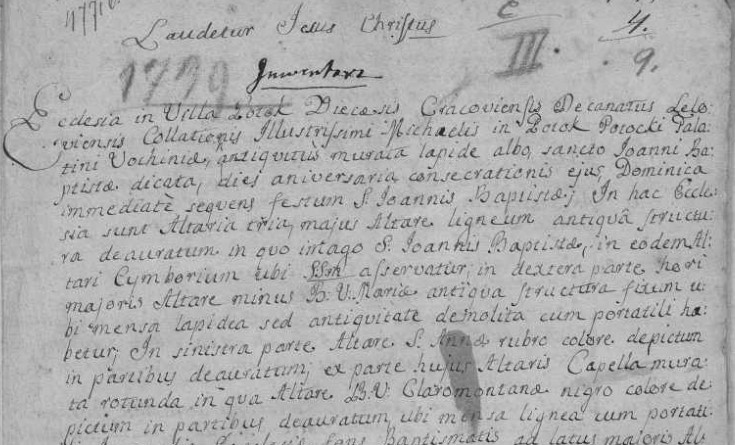 Laudetur Jesus Christus
III.
4.
9.
1779
Inwentarz
Eclesia in Villa Potok Diecæsis Cracoviensis Decanatus Lelo-
viensis Collationis Illustrissimi Michaelis in Potok Potocki Pala-
tini Vochiniæ, antiquitus murata lapide albo, sancto Joanni Ba-
ptistæ dicata, dies aniversaria consecrationis ejus, Dominica
immediatè sequens festum S. Joannis Baptistæ; In hac Eccle-
sia sunt Altaria tria, majus Altare ligneum antiquâ structu-
ra deauratum in quo imago S. Joannis Baptistæ, in eodem Al-
tari Cymborium ubi SSm asservatur, in dextera parte hori
majoris Altare minus B. V. Mariæ antiqua structura fixum u-
bi mensa lapidea sed antiquitate demolita cum portatili ha-
betur; In sinistra parte Altare S. Annæ rubro colore depictum
in partibus deauratum; ex parte hujus Altaris Capella mura-
ta rotunda in qua Altare B. V. Claromontanæ nigro colore de-
pictum in partibus deauratum, ubi mensa lignea cum portati-
Fons Baptismatis ad latus majoris Al-